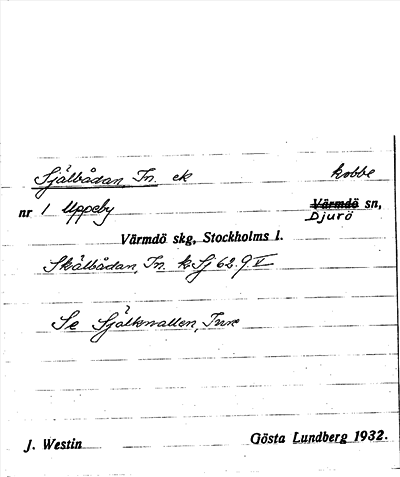 Själbådan, In. ek kobbe
nr 1 Uppeby Värmdö sn,
Djurö
Värmdö skg, Stockholms l.
Skälbådan, In. k Sj 62. 9 V
Se Själknallen,
J. Westin Gösta Lundberg 1932.